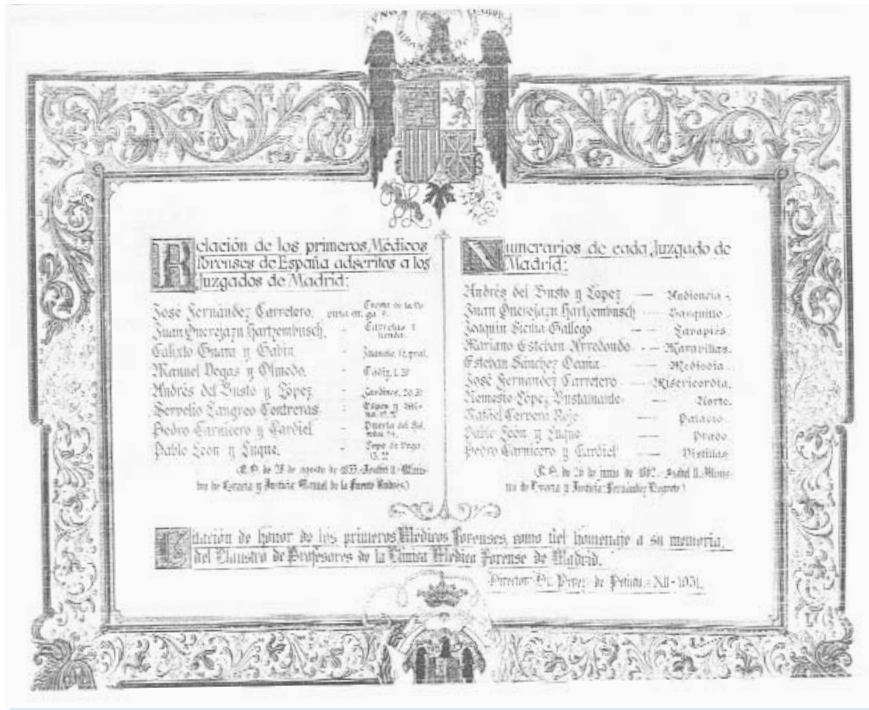 Relación de los primeros Médicos
forenses de España adscritos a los
Juzgados de Madrid:
José Fernández Carretero,
Juan Querejazu Hartzembusch,
Calixto Guara y Gabin
Manuel Vegas y Olmedo. - Cádiz,
Andrés del Busto y López - Jardines,
Servelio Langreo Contreras - Espoz y Mina,
Pedro Carnicero y Cardiel - Puerta del Sol
Pablo León y Luque. - Lope de Vega
(R.O. de 28 de agosto de Isabel II.-Minis-
tro de Gracia y Justicia Manuel de la Fuente Andrés)
Numerarios de cada Juzgado de
Madrid:
Andrés del Busto y López — Audiencia -
Juan Querejazu Hartzembusch — Barquillo -
Joaquin Sicilia Gallego — Lavapiés-
Mariano Esteban Arredondo — Maravillas.
Esteban Sánchez Ocaña —
José Fernández Carretero — Misericordia.
Nemesio López Bustamante — Norte.
Rafael Cervera Royo — Palacio.
Pablo León y Luque — Prado
Pedro Carnicero y Cardiel — Vistillas
(R.O. de 26 de junio de 1862.- Isabel II.-Minis-
tro de Gracia y Justicia: Fernández Negrete)
Relación de honor de los primeros Médicos Forenses, como fiel homenaje a su memoria,
del Claustro de Profesores de la Clínica Médico Forense de Madrid.
Director: Dr. Pérez de Petinto - XII - 1951.